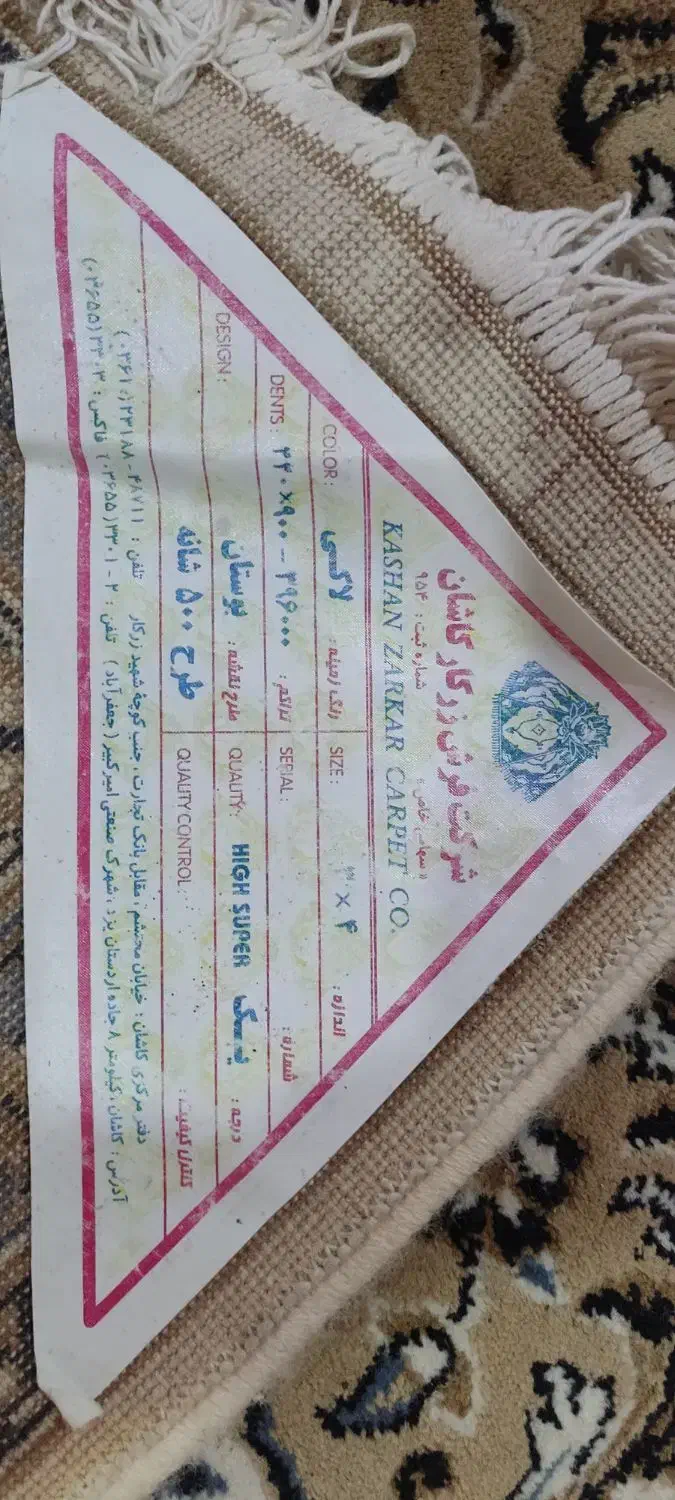 شرکت فرش زرکار کاشان
« سهامی خاص »
شماره ثبت : ۹۵۴
KASHAN ZARKAR CARPET CO.
COLOR : لاکی رنگ زمینه : SIZE : ۳ × ۴ اندازه :
DENTS : ۴۴۰×۹۰۰ – ۳۹۶۰۰۰ تراکم : SERIAL : شماره :
DESIGN : بوستان طرح نقشه : QUALITY : HIGH SUPER یک درجه :
طرح ۵۰۰ شانه QUALITY CONTROL کنترل کیفیت :
دفتر مرکزی کاشان : خیابان محتشم ، مقابل بانک تجارت ، جنب کوچه شهید زرکار تلفن : ۴۸۷۱۱ - ۲۳۱۸۸ (۰۳۶۱)
آدرس : کاشان ، کیلومتر ۸ جاده اردستان یزد ، شهرک صنعتی امیرکبیر ( جعفرآباد ) تلفن : ۲ - ۳۳۰۱ (۰۳۶۵۵) فاکس : ۳۳۰۳ (۰۳۶۵۵)